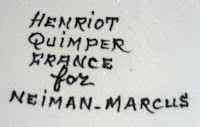 HENRIOT
QUIMPER
FRANCE
for
NEIMAN-MARCUS